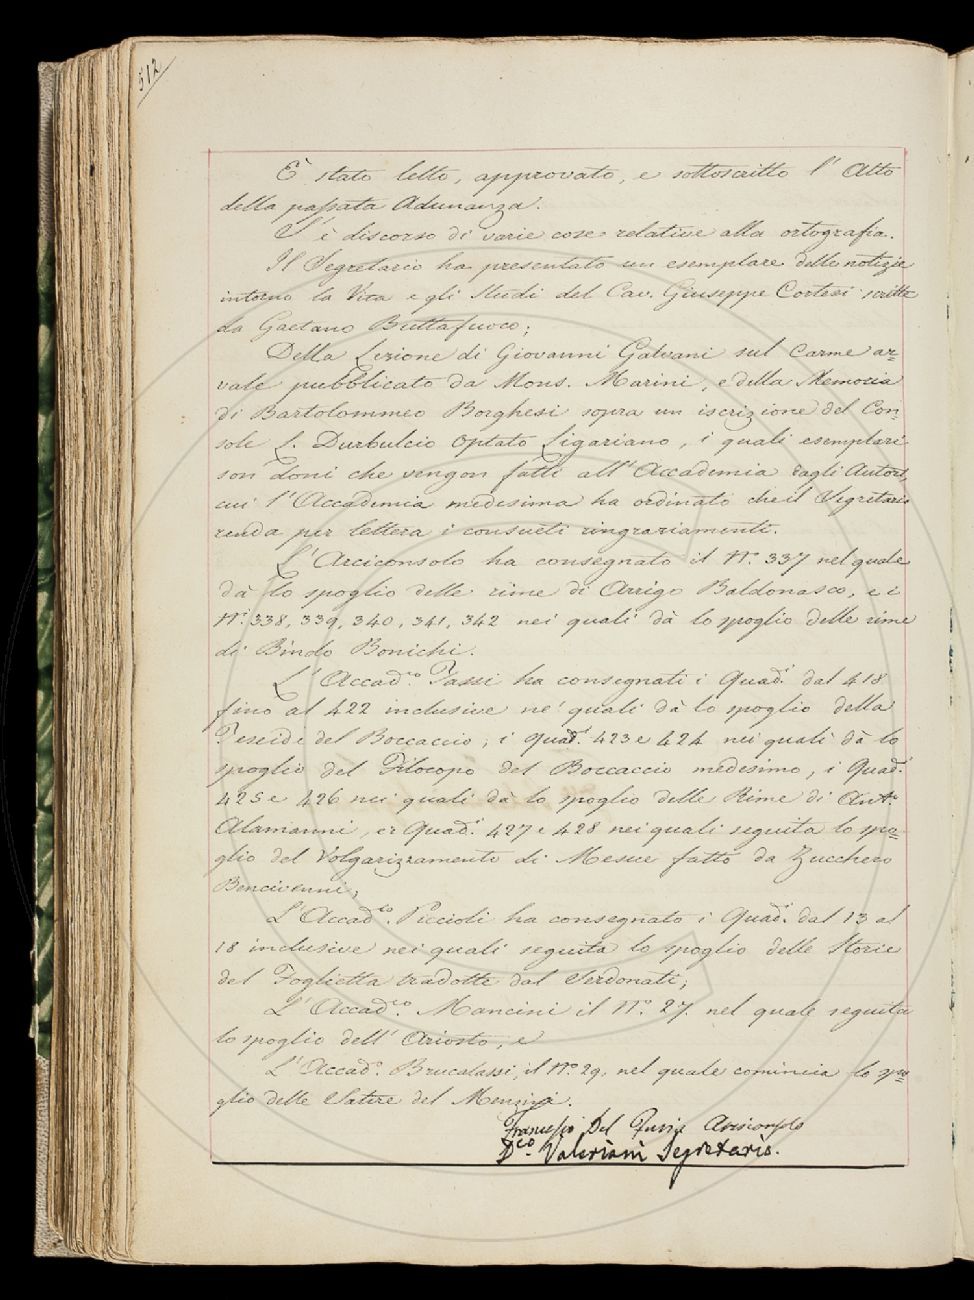 512
È stato letto, approvato, e sottoscritto l'Atto
della passata Adunanza.
S'è discorso di varie cose relative alla ortografia.
Il Segretario ha presentato un esemplare delle notizie
intorno la Vita e gli studi del Cav. Giuseppe Cortesi scritte
da Gaetano Buttafuoco;
Della Lezione di Giovanni Galvani sul Carme ar=
vale pubblicato da Mons. Marini, e della Memoria
di Bartolommeo Borghesi sopra un iscrizione del Con=
sole L. Burbuleio Optato Ligariano, i quali esemplari
son doni che vengon fatti all'Accademia dagli Autori,
cui l'Accademia medesima ha ordinato che il Segretario
renda per lettera i consueti ringraziamenti.
L'Arciconsolo ha consegnato il N.º 337 nel quale
dà lo spoglio delle rime di Arrigo Baldonasco, e i
N.i 338, 339, 340, 341, 342 nei quali dà lo spoglio delle rime
di Bindo Bonichi.
L'Accad.co Tassi ha consegnati i Quad.i dal 418
fino al 422 inclusive ne' quali dà lo spoglio della
Teseide del Boccaccio; i quad.i 423 e 424 nei quali dà lo
spoglio del Filocopo del Boccaccio medesimo, i Quad.i
425 e 426 nei quali dà lo spoglio delle Rime di Ant.o
Alamanni, e i Quad.i 427 e 428 nei quali seguita lo spo=
glio del Volgarizzamento di Mesue fatto da Zucchero
Bencivenni;
L'Accad.co Piccioli ha consegnato i Quad.i dal 13 al
18 inclusive nei quali seguita lo spoglio delle Storie
del Foglietta tradotte dal Serdonati;
L'Accad.co Mancini il N.º 27. nel quale seguita
lo spoglio dell'Ariosto, e
L'Accad.o Brucalassi, il N.º 29, nel quale comincia lo spo=
glio delle Satire del Menzini.
Francesco Del Furia Arciconsolo
D.co Valeriani Segretario.